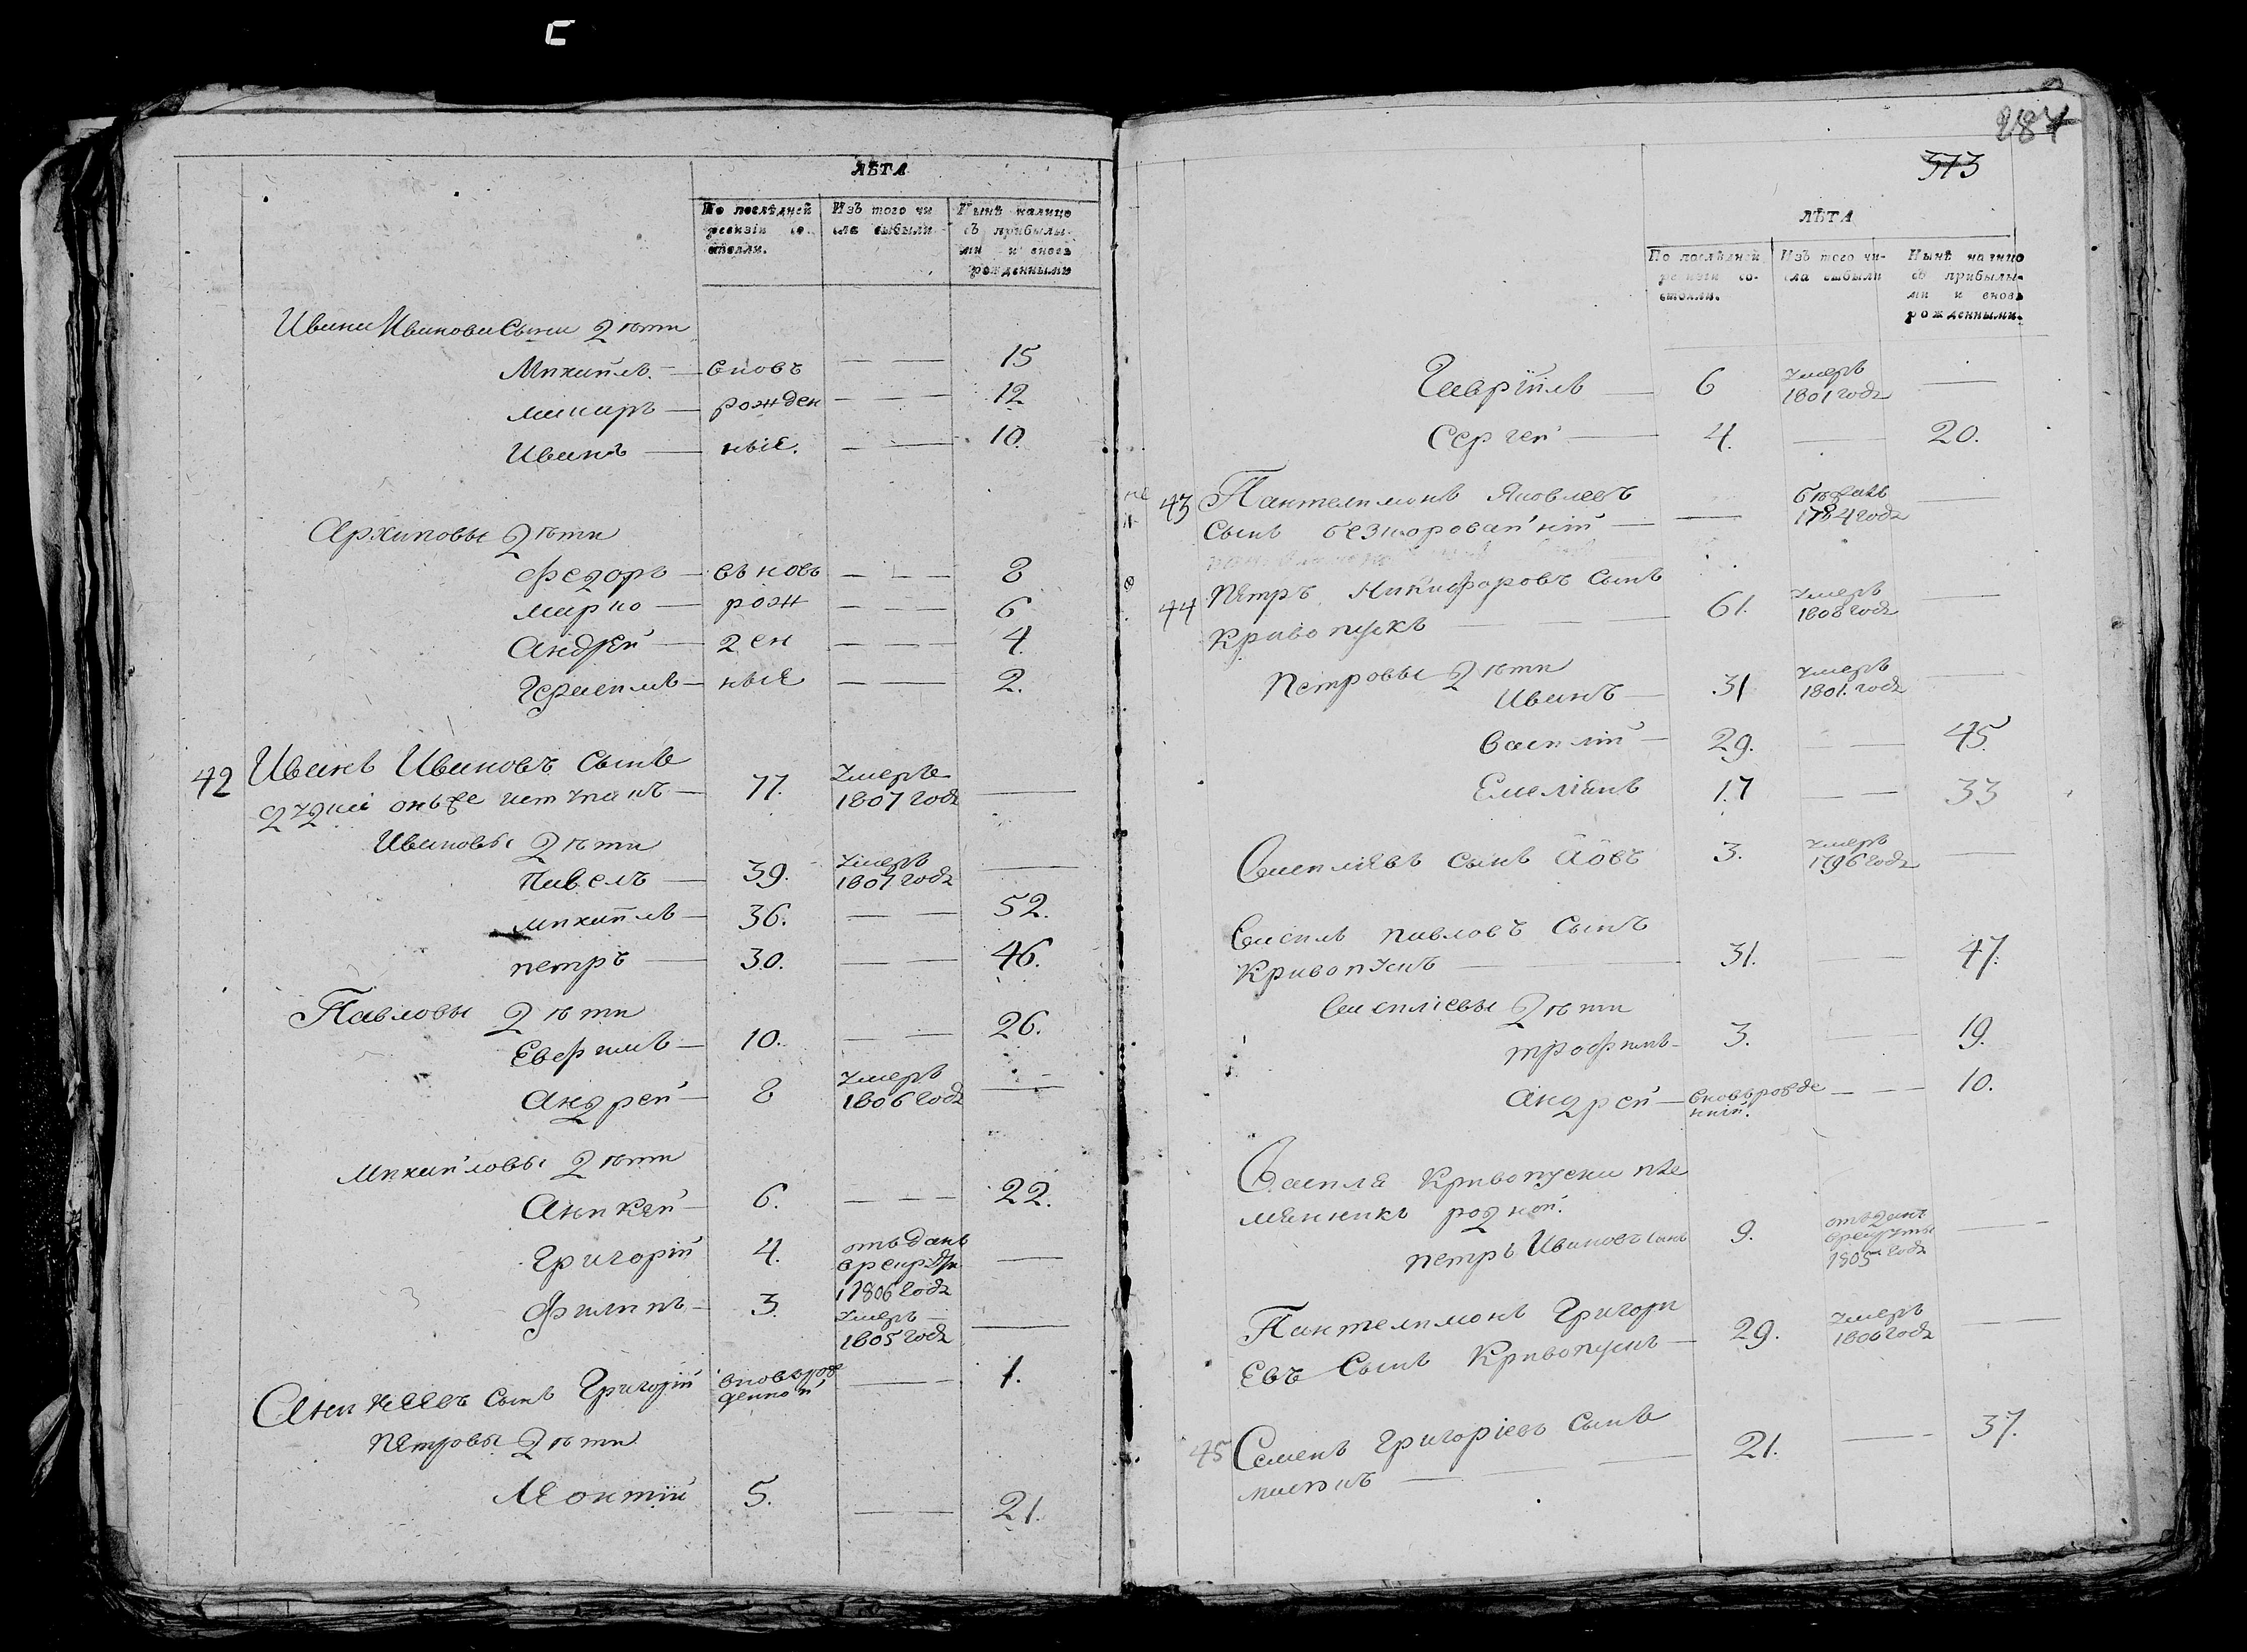 ЛѢТА
По послѣдней ревизіи состояли. Изъ того числа выбыли Нынѣ налицо съ прибылыми и вновь рожденными
Ивана Иванова Сына Дѣти
Михаилъ — вновь — — 15
макаръ — рожден — — — 12
Иванъ — ныіе. — — 10.
Архиповы Дѣти
Федоръ — въновь — — — 8
марко — рож — — — 6
Андрей — ден — — — 4.
Герасимъ — ныіе — — 2.
42 Иванъ Ивановъ Сынъ
77. Умеръ 1807 годѣ —
Ивановы Дѣти
Павелъ — 39. Умеръ 1807 годѣ —
михаилъ — 36. — — 52.
петръ — 30. — — 46.
Павловы Дѣти
Евфимъ — 10. — — 26.
Андрей — 8 Умеръ 1806 годѣ —
михаиловы Дѣти
Аникей — 6. — — — 22.
Григорій 4. отъданъ врекруты 1806 годѣ —
Филипъ — 3. Умеръ 1805 годѣ —
Аникеевъ сынъ Григорій вновьрожденной — — 1.
Петровы Дѣти
Леонтій 5. — — 21.
287
373
ЛѢТА
По послѣдней ревизіи состояли. Изъ того числа выбыли Нынѣ налицо съ прибылыми и вновь рожденными.
Гавріилъ — 6 Умеръ 1801 годѣ —
Сергей — 4. — 20.
43 Пантелимонъ Яковлевъ
Сынъ — — бѣжалъ 1784 годѣ —
44 Петръ Никифоровъ Сынъ
Кривопускъ — — 61. Умеръ 1808 годѣ —
Петровы Дѣти
Иванъ — 31 Умеръ 1801. годѣ —
Василій — 29. — — 45.
Емеліянъ 17 — — 33
Василіевъ сынъ Іовъ 3. Умеръ 1796 годѣ —
Василь павловъ Сынъ
Кривопускъ — 31. — — 47.
Василіевы Дѣти
трофимъ — 3. — — 19.
Андрей — вновьрожденній. — — 10.
Василя Кривопуска пле
мянникъ родной.
петръ Ивановъ сынъ 9. отъданъ врекруты 1805 годѣ —
Пантелимонъ Григори
евъ Сынъ Кривопускъ — 29. Умеръ 1806 годѣ — —
45 Семенъ Григоріевъ Сынъ
— — 21. — — 37.